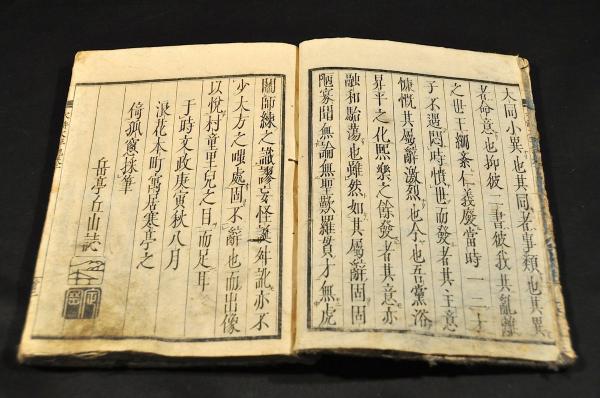 大同小異也其同者事類也其異
者命意也抑彼二書彼我其亂離
之世王綱紊仁義廢當時一二才
子不遇悶時憤世而發者其主意
慷慨其屬辭激烈也今也吾黨浴
昇平之化熙樂之餘發者其意亦
融和駘蕩也雖然如其屬辭固固
陋寡聞無論無聖歎羅貫才無虎
關師練之識謬妄怪誕舛訛亦不
少大方之嗤處固不辭也而出像
以悅村童里兒之目而足耳
于時文政庚寅秋八月
浪花本町寓居寒亭之
倚孤窓採筆
岳亭丘山誌